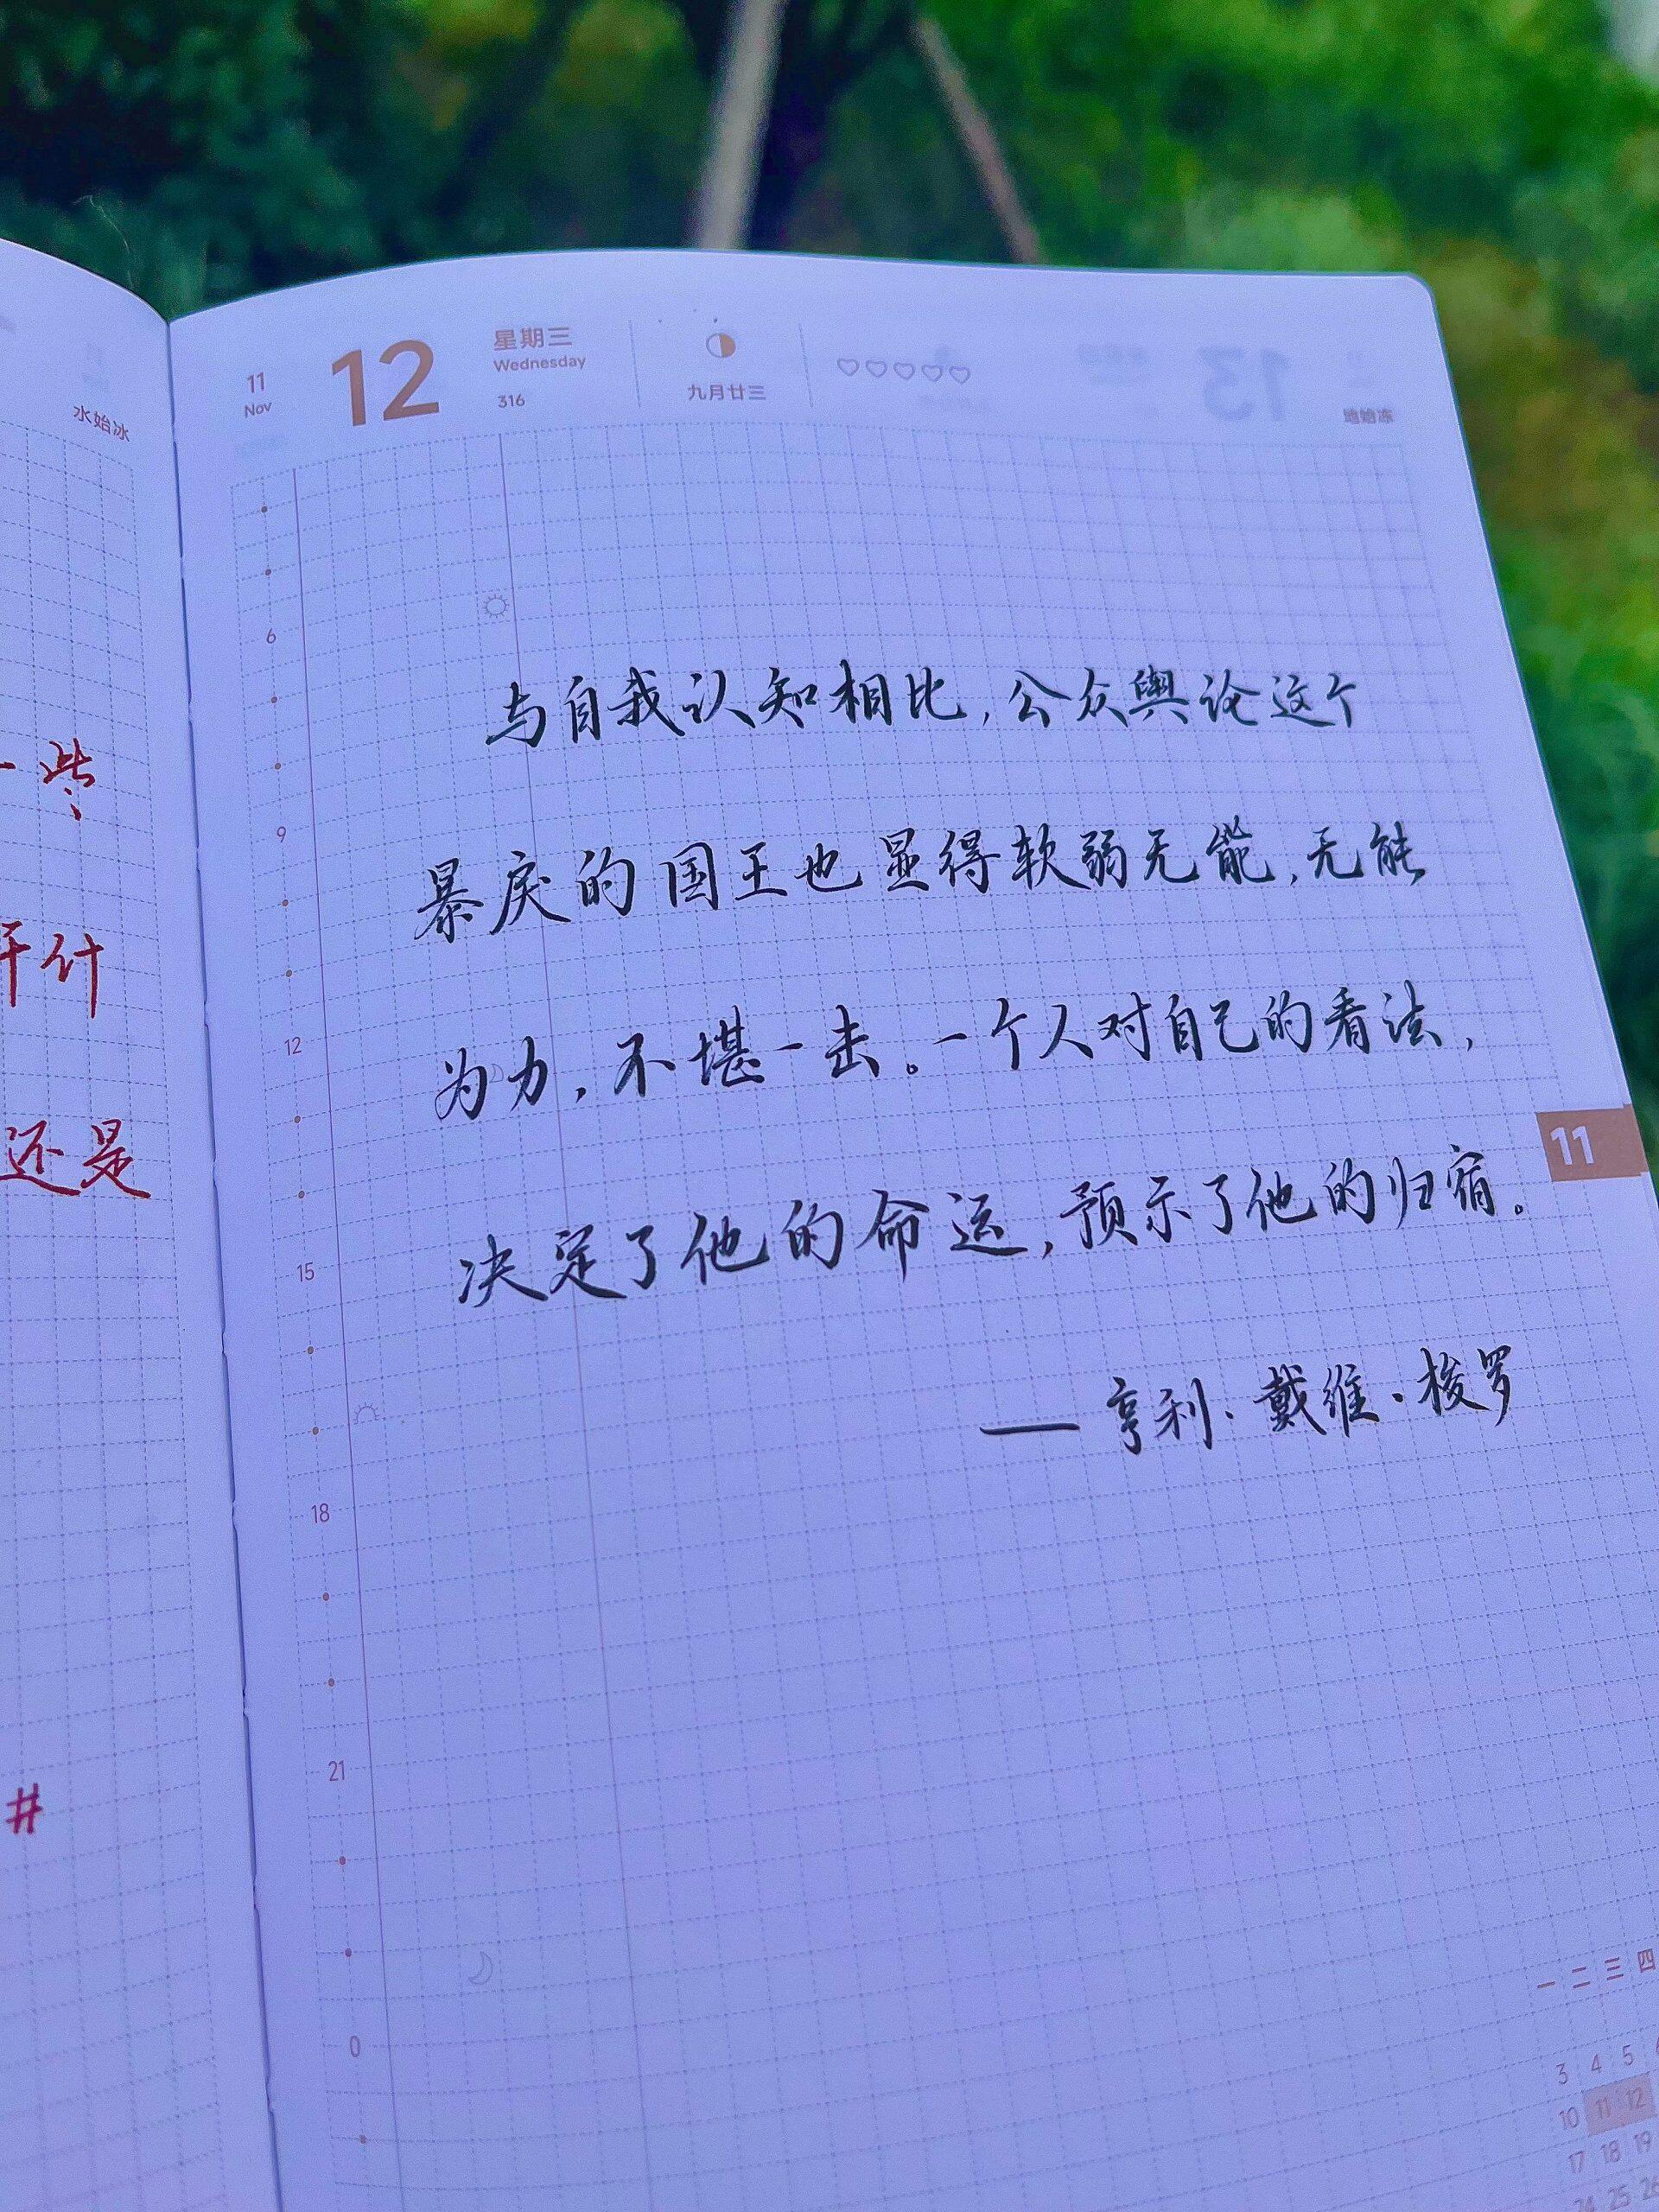 水始冰
一些
干什
还是
#
11
Nov
12
星期三
Wednesday
316
九月廿三
13
地始冻
6
与自我认知相比,公众舆论这个
9
暴戾的国王也显得软弱无能,无能
12
为力,不堪一击。一个人对自己的看法,
11
15
决定了他的命运,预示了他的归宿。
——亨利·戴维·梭罗
18
21
0
一 二 三 四
3 4 5
10 11 12
17 18 19
24 25 26